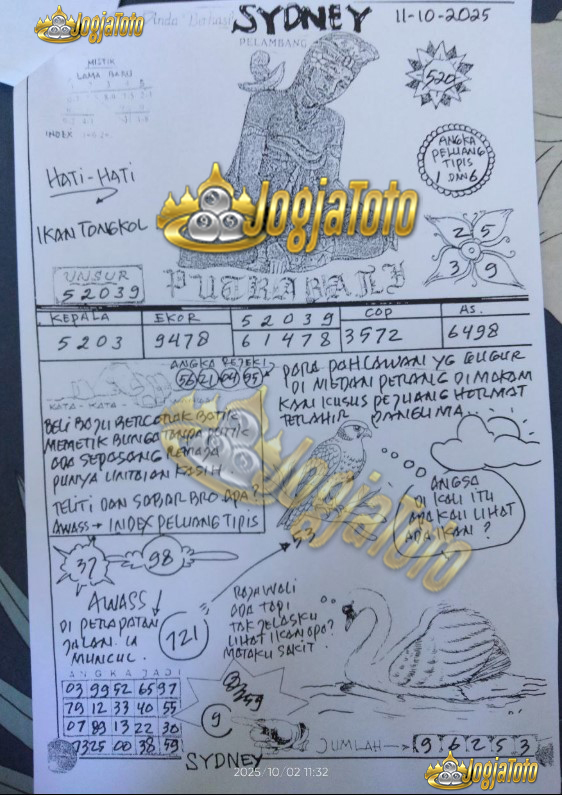 JogjaToto
SYDNEY
11-10-2025
PELAMBANG
MISTIK
LAMA BARU
INDEX
520
ANGKA
PELUANG
TIPIS
1 DAN 6
HATI-HATI
IKAN TONGKOL
JogjaToto
2 5
3 9
UNSUR
52039
PUTRA BALI
KEPALA
EKOR
52039
COP
AS.
5203
9478
61478
3572
6498
ANGKA REJEKI
56 21 04 95
KATA - KATA
PARA PAHLAWAN YG GUGUR
DI MEDAN PERANG DIMAKAM
KAN KUSUS PEJUANG HORMAT
TERLAHIR PANGLIMA
BELI BAJU BERCORAK BATIK
MEMETIK BUNGA TANPA PUTIK
ADA SEPASANG REMAJA
PUNYA UNTAIAN KASIH
TELITI DAN SABAR BRO APA?
AWASS → INDEX PELUANG TIPIS
JogjaToto
ANGSA
DI KALI ITU
ADA KAU LIHAT
ADA IKAN?
37
98
AWASS!
DI PERAPATAN
JALAN
MUNCUL.
721
RAJAWALI
ADA TAPI
TAK JELASKU
LIHAT IKAN APA?
MATAKU SAKIT.
ANGKA JADI
03 99 52 65 97
79 12 33 40 55
07 89 13 22 30
73 25 00 38 59
9
SYDNEY
JUMLAH → 9 6 2 5 3
2025/10/02 11:32
JogjaToto